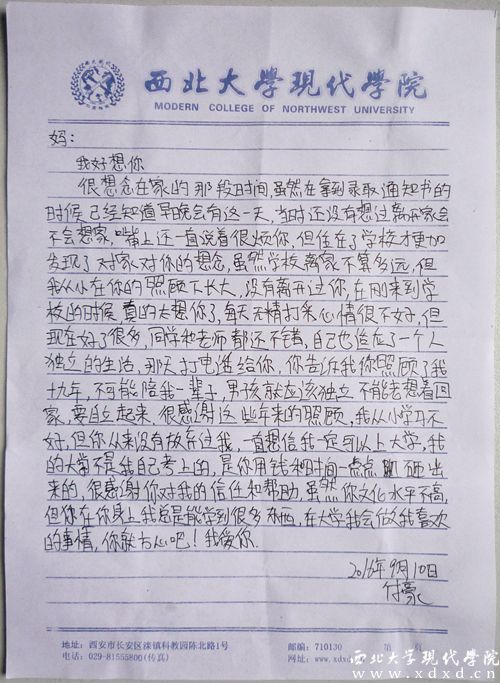 西北大學現代學院
MODERN COLLEGE OF NORTHWEST UNIVERSITY
妈:
我好想你
很想念在家的那段时间,虽然在拿到录取通知书的
时候已经知道早晚会有这一天,当时还没有想过离开家会
不会想家,嘴上还一直说着很烦你,但住在了学校才更加
发现了对家对你的想念,虽然学校离家不算多远,但
我从小在你的照顾下长大,没有离开过你,在刚来到学
校的时候真的太想你了,每天无精打采心情很不好,但
现在好了很多,同学和老师都还不错,自己也适应了一个人
独立的生活,那天打电话给你,你告诉我你照顾了我
十九年,不可能陪我一辈子,男孩就应该独立不能老想着回
家,要自立起来,很感谢这些年来的照顾,我从小学习不
好,但你从来没有放弃过我,一直想信我一定可以上大学,我
的大学不是我自己考上的,是你用钱和时间一点点 砸出
来的,很感谢你对我的信任和帮助,虽然你文化水平不高,
但你在你身上我总是能学到很多东西,在大学我会做我喜欢
的事情,你就放心吧!我爱你.
2016年9月10日
付豪
地址:西安市长安区滦镇科教园陈北路1号
邮编:710130 第
电话:029-81555800(传真)
网址:www.xdxd
西北大学现代学院
www.xdxd.cn